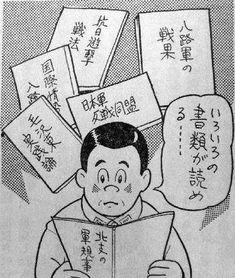 八路軍の
戦果
抗日遊撃
戦法
国際情勢
八路
日本軍
反戦同盟
毛沢東
いろいろの
書類が読め
る……
北支の
軍規事